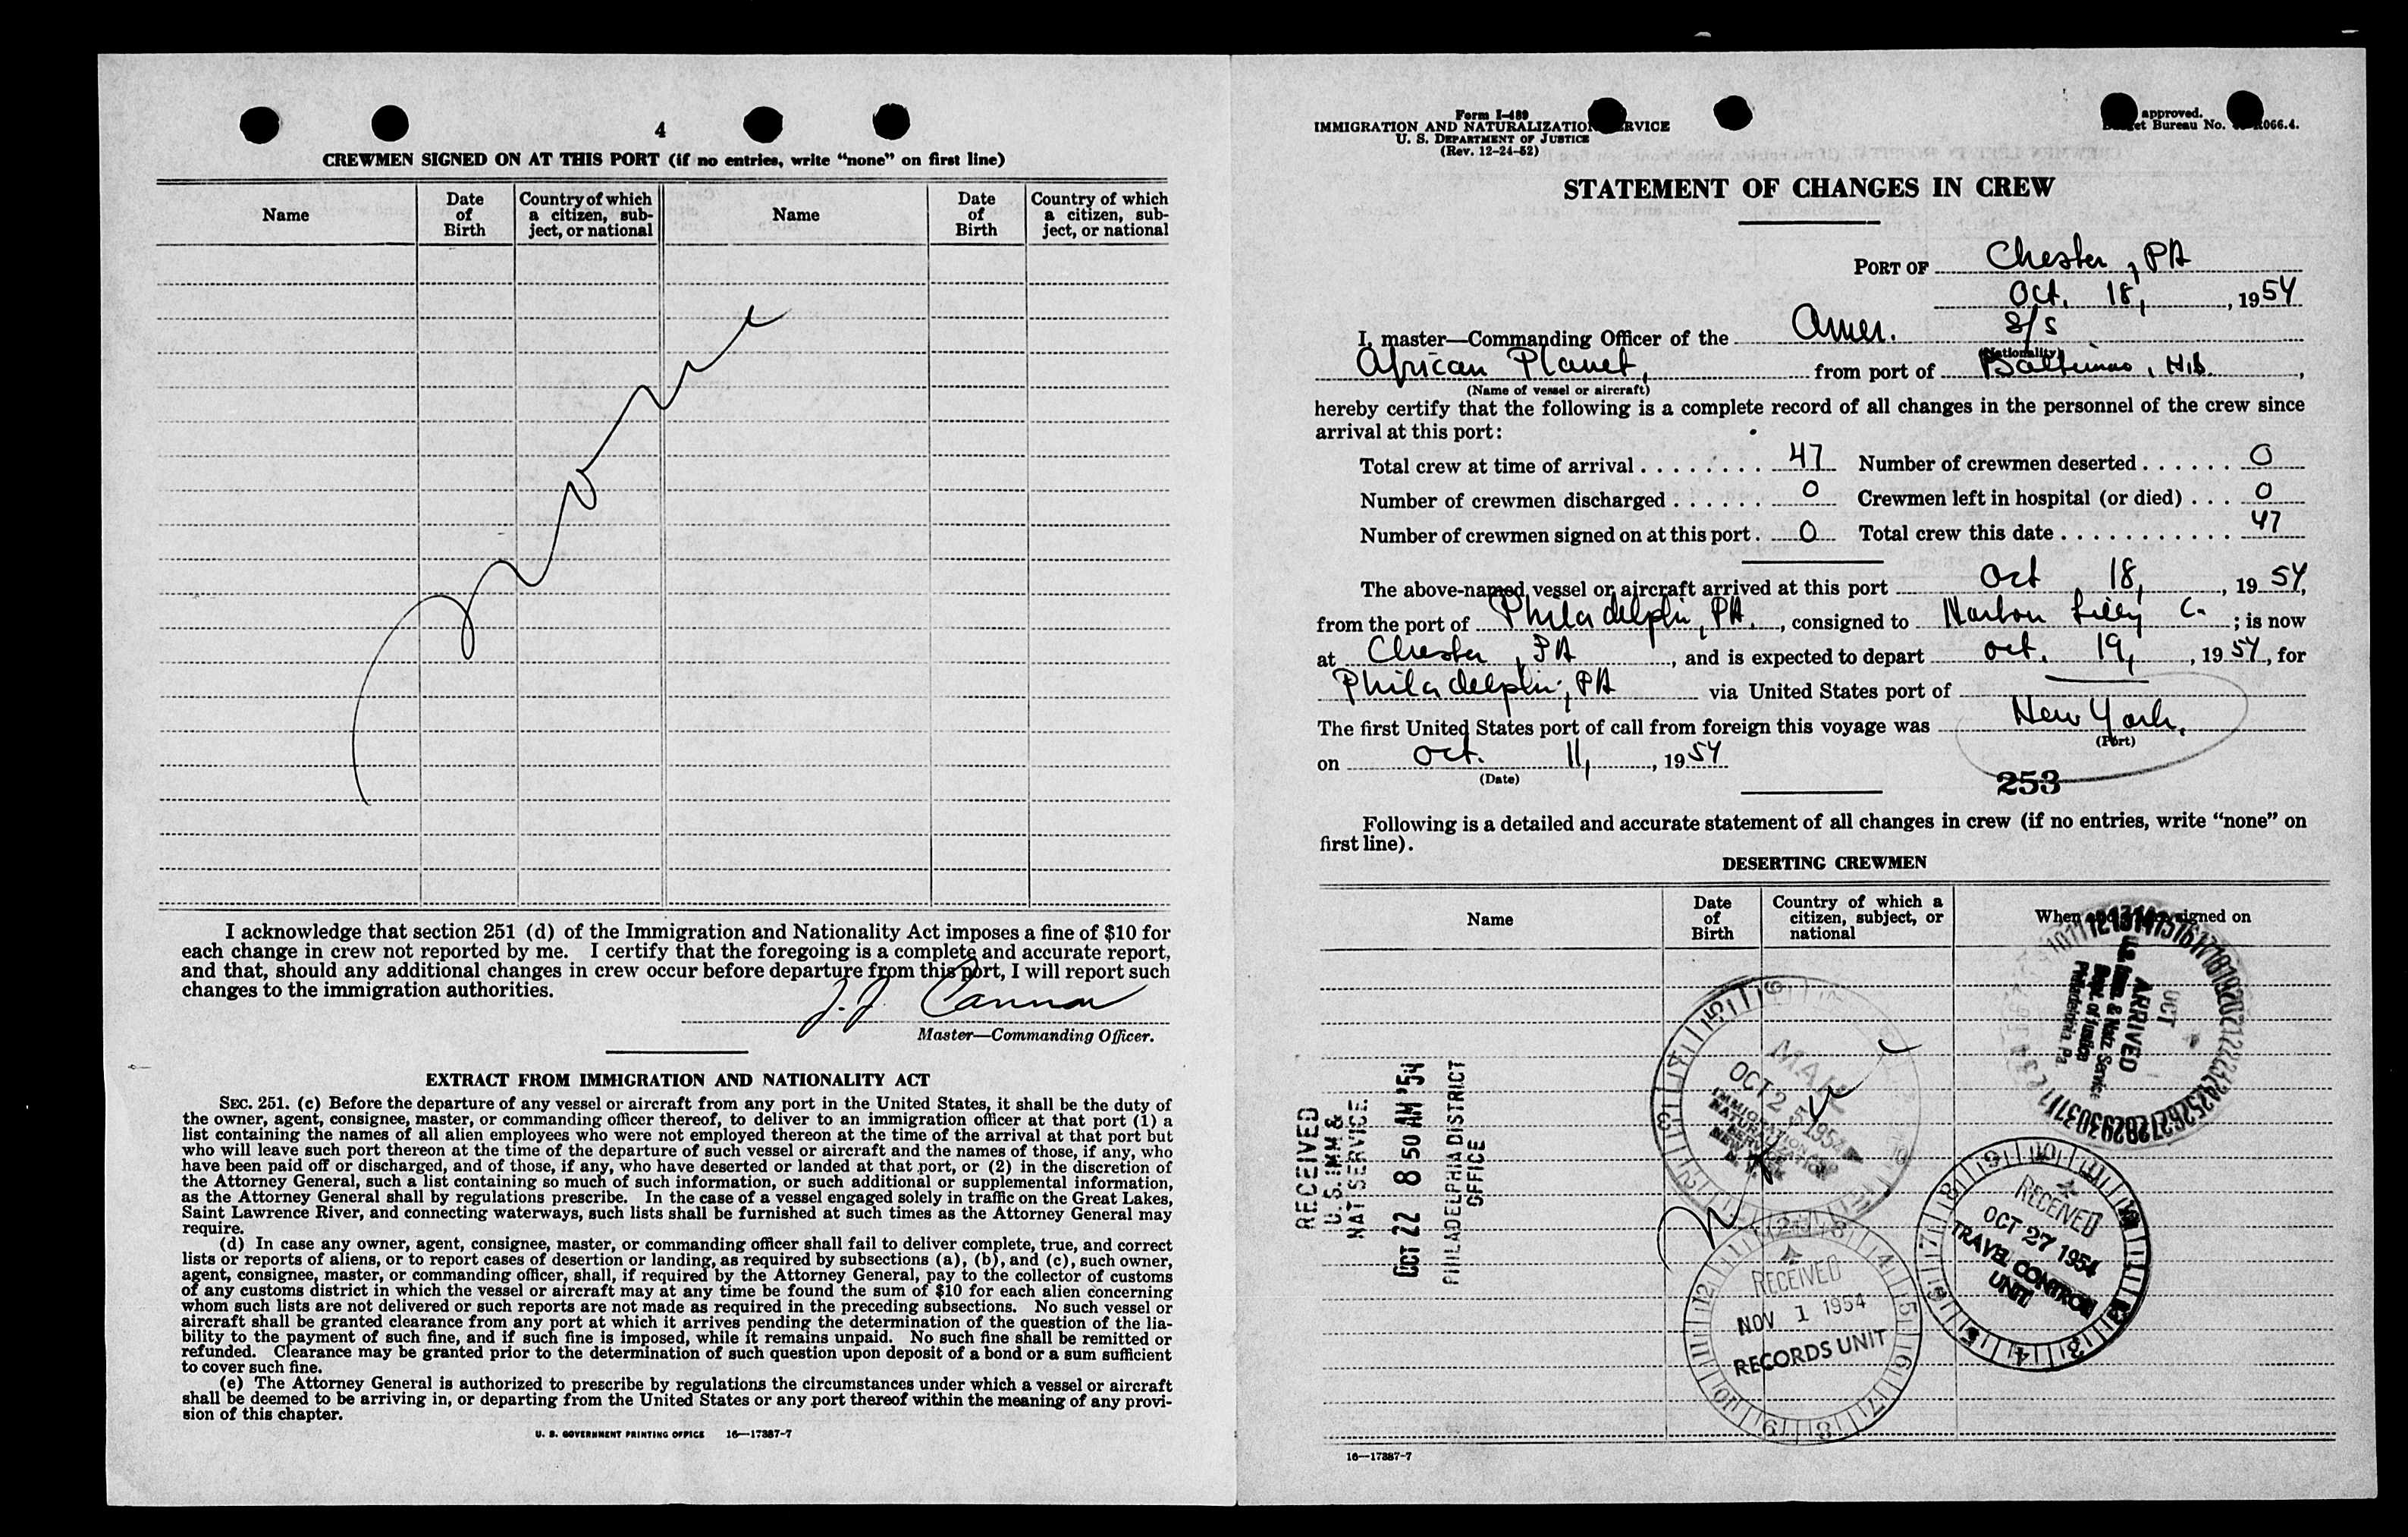 4
CREWMEN SIGNED ON AT THIS PORT (if no entries, write “none” on first line)
Name
Date of Birth
Country of which a citizen, subject, or national
Name
Date of Birth
Country of which a citizen, subject, or national
None
I acknowledge that section 251 (d) of the Immigration and Nationality Act imposes a fine of $10 for
each change in crew not reported by me. I certify that the foregoing is a complete and accurate report,
and that, should any additional changes in crew occur before departure from this port, I will report such
changes to the immigration authorities.
J. J. Cannon
Master—Commanding Officer.
EXTRACT FROM IMMIGRATION AND NATIONALITY ACT
SEC. 251. (c) Before the departure of any vessel or aircraft from any port in the United States, it shall be the duty of
the owner, agent, consignee, master, or commanding officer thereof, to deliver to an immigration officer at that port (1) a
list containing the names of all alien employees who were not employed thereon at the time of the arrival at that port but
who will leave such port thereon at the time of the departure of such vessel or aircraft and the names of those, if any, who
have been paid off or discharged, and of those, if any, who have deserted or landed at that port, or (2) in the discretion of
the Attorney General, such a list containing so much of such information, or such additional or supplemental information,
as the Attorney General shall by regulations prescribe. In the case of a vessel engaged solely in traffic on the Great Lakes,
Saint Lawrence River, and connecting waterways, such lists shall be furnished at such times as the Attorney General may
require.
(d) In case any owner, agent, consignee, master, or commanding officer shall fail to deliver complete, true, and correct
lists or reports of aliens, or to report cases of desertion or landing, as required by subsections (a), (b), and (c), such owner,
agent, consignee, master, or commanding officer, shall, if required by the Attorney General, pay to the collector of customs
of any customs district in which the vessel or aircraft may at any time be found the sum of $10 for each alien concerning
whom such lists are not delivered or such reports are not made as required in the preceding subsections. No such vessel or
aircraft shall be granted clearance from any port at which it arrives pending the determination of the question of the lia-
bility to the payment of such fine, and if such fine is imposed, while it remains unpaid. No such fine shall be remitted or
refunded. Clearance may be granted prior to the determination of such question upon deposit of a bond or a sum sufficient
to cover such fine.
(e) The Attorney General is authorized to prescribe by regulations the circumstances under which a vessel or aircraft
shall be deemed to be arriving in, or departing from the United States or any port thereof within the meaning of any provi-
sion of this chapter.
U. S. GOVERNMENT PRINTING OFFICE 16—17387-7
Form I-489
IMMIGRATION AND NATURALIZATION SERVICE
U. S. DEPARTMENT OF JUSTICE
(Rev. 12-24-52)
approved.
Bureau No. 066.4.
STATEMENT OF CHANGES IN CREW
PORT OF Chester, PA
Oct. 18, , 1954
I, master—Commanding Officer of the Amer. S/S
(Nationality)
African Planet, from port of Baltimore, Md. ,
(Name of vessel or aircraft)
hereby certify that the following is a complete record of all changes in the personnel of the crew since
arrival at this port:
Total crew at time of arrival 47 Number of crewmen deserted 0
Number of crewmen discharged 0 Crewmen left in hospital (or died) 0
Number of crewmen signed on at this port 0 Total crew this date 47
The above-named vessel or aircraft arrived at this port Oct 18, , 1954,
from the port of Philadelphi, PA. , consigned to Lilly C. ; is now
at Chester, PA , and is expected to depart oct. 19, , 1954, for
Philadelphi, PA via United States port of
The first United States port of call from foreign this voyage was New York.
(Port)
on Oct. 11, , 1954
(Date)
253
Following is a detailed and accurate statement of all changes in crew (if no entries, write “none” on
first line).
DESERTING CREWMEN
Name
Date of Birth
Country of which a citizen, subject, or national
When signed on
None
RECEIVED
U.S. IMM &
NAT SERVICE
OCT 22 8 50 AM '54
PHILADELPHIA DISTRICT
OFFICE
MAIL
OCT 25 1954
IMMIGRATION
NATURALIZATION
SERVICE
NEW YORK
N. Y.
ARRIVED
OCT
U.S. Imm. & Natz. Service
Dept. of Justice
Philadelphia Pa.
RECEIVED
OCT 27 1954
TRAVEL CONTROL
UNIT
RECEIVED
NOV 1 1954
RECORDS UNIT
16—17387-7